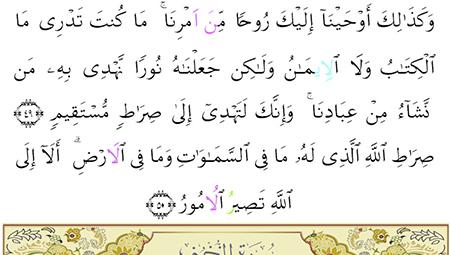 وَكَذَٰلِكَ أَوْحَيْنَآ إِلَيْكَ رُوحًا مِّنَ اَمْرِنَا ۚ مَا كُنتَ تَدْرِى مَا
اَ۬لْكِتَٰبُ وَلَا اَ۬لِايمَٰنُ وَلَٰكِن جَعَلْنَٰهُ نُورًا نَّهْدِى بِهِۦ مَن
نَّشَآءُ مِنْ عِبَادِنَا ۚ وَإِنَّكَ لَتَهْدِىٓ إِلَىٰ صِرَٰطٍ مُّسْتَقِيمٍ ﴿٤٩﴾
صِرَٰطِ اِ۬للَّهِ اِ۬لَّذِى لَهُۥ مَا فِى اَ۬لسَّمَٰوَٰتِ وَمَا فِى اِ۬لَارْضِ ۗ أَلَآ إِلَى
اَ۬للَّهِ تَصِيرُ اُ۬لُامُورُ ﴿٥٠﴾
سُورَةُ الزُّخْرُفِ